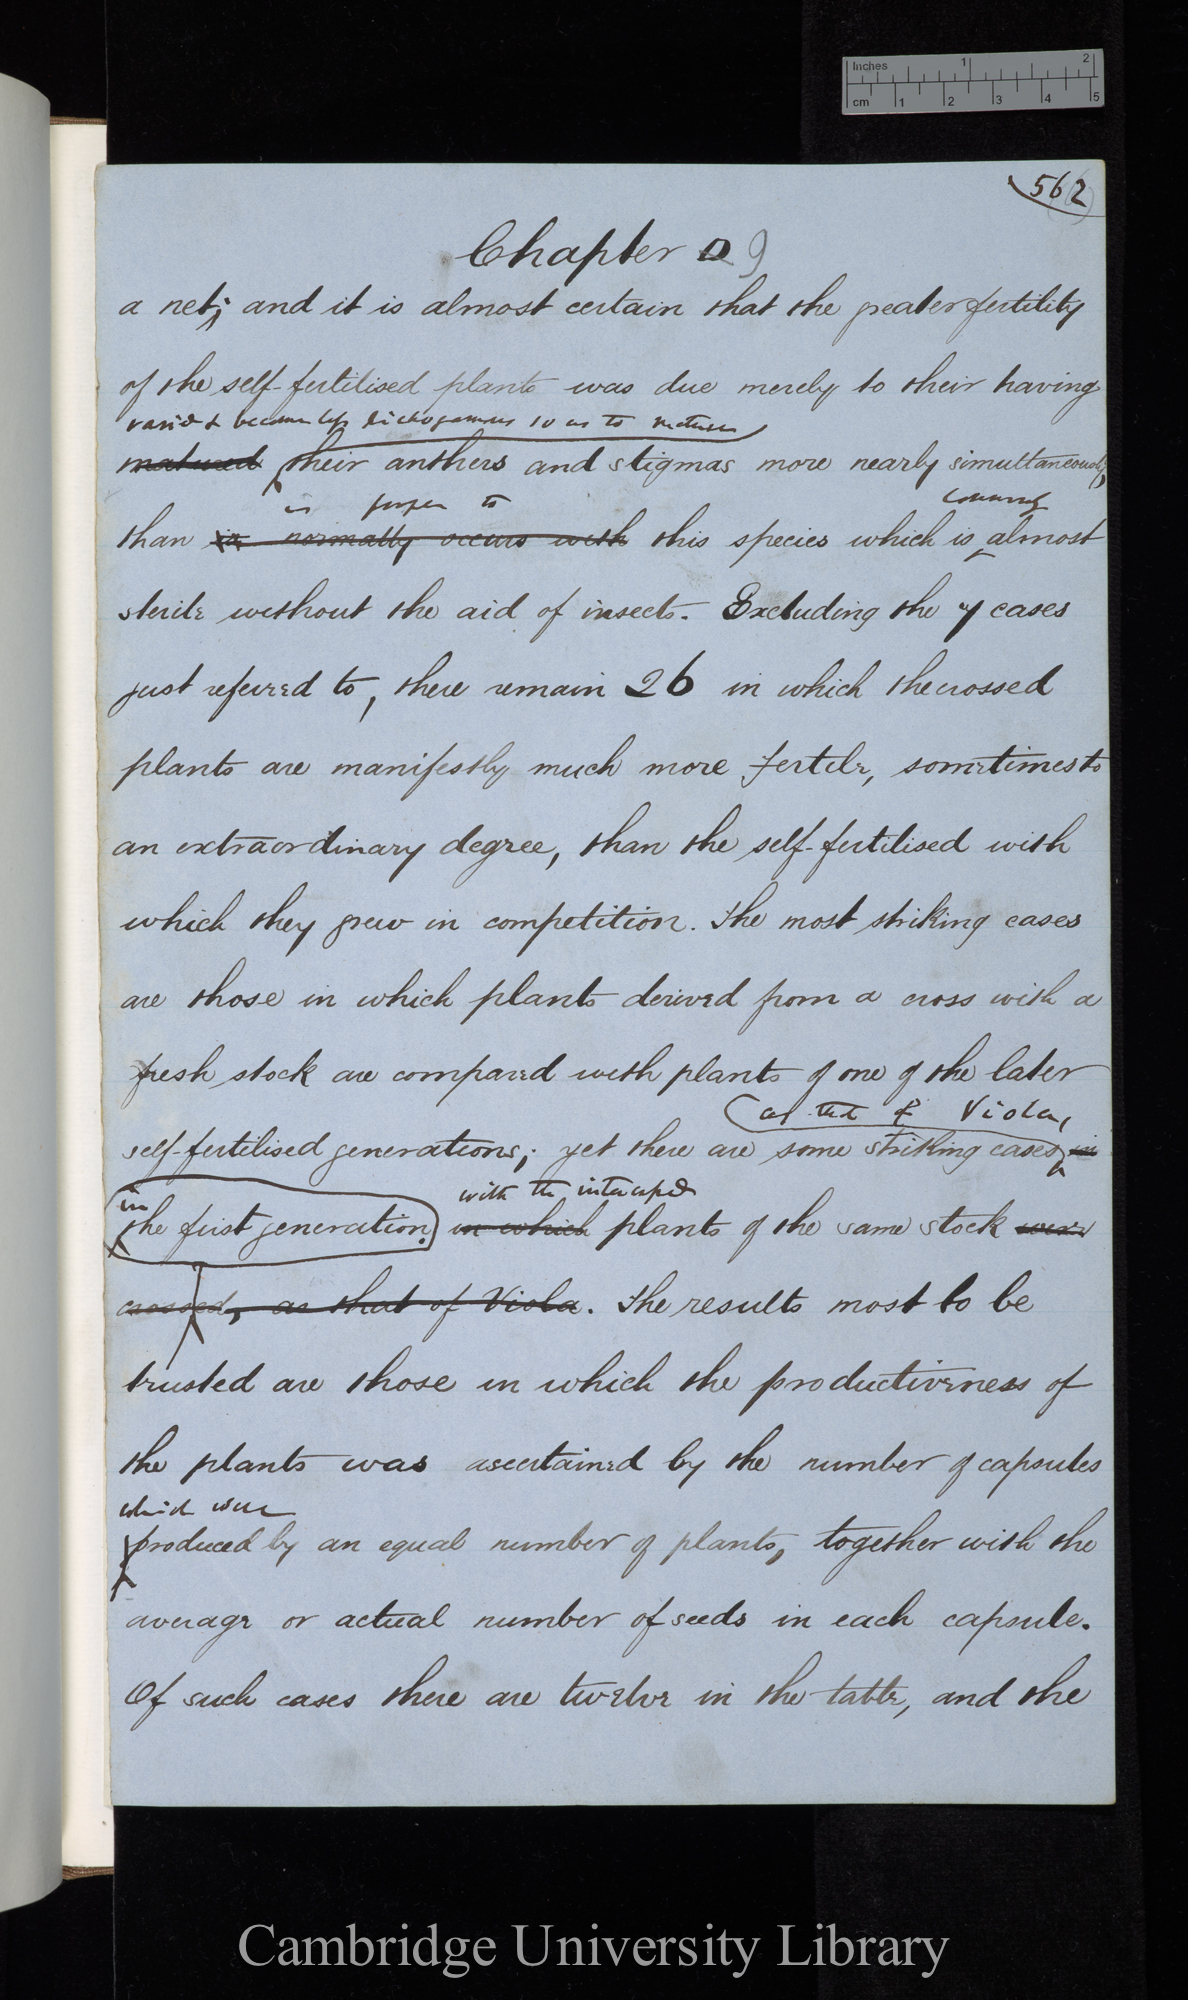 Inches 1 2
cm 1 2 3 4 5
562
Chapter 9
a net; and it is almost certain that the greater fertility
of the self-fertilised plants was due merely to their having
varied & become less dichogamous so as to mature
matured their anthers and stigmas more nearly simultaneously,
is proper to
than is normally occurs with this species which is almost
sterile without the aid of insects. Excluding the 7 cases
just referred to, there remain 26 in which the crossed
plants are manifestly much more fertile, sometimes to
an extraordinary degree, than the self-fertilised with
which they grew in competition. The most striking cases
are those in which plants derived from a cross with a
fresh stock are compared with plants of one of the later
as that of Viola,
self-fertilised generations; yet there are some striking cases, in
in with the intercrossed
the first generation. in which plants of the same stock were
crossed, as that of Viola. The results most to be
trusted are those in which the productiveness of
the plants was ascertained by the number of capsules
which were
produced by an equal number of plants, together with the
average or actual number of seeds in each capsule.
Of such cases there are twelve in the table, and the
Cambridge University Library